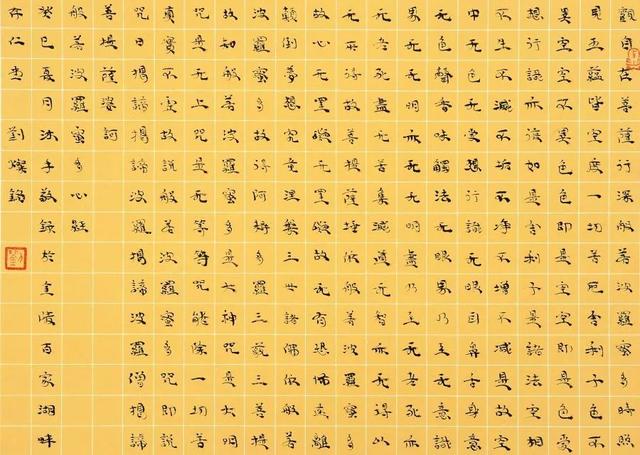 觀自在菩薩行深般若波羅蜜多時照
見五蘊皆空度一切苦厄舍利子色不
異空空不異色色即是空空即是色受
想行識亦復如是舍利子是諸法空相
不生不滅不垢不淨不增不減是故空
中无色无受想行識无眼耳鼻舌身意
无色聲香味觸法无眼界乃至无意識
界无无明亦无无明盡乃至无老死亦
无老死盡无苦集滅道无智亦无得以
无所得故菩提薩埵依般若波羅蜜多
故心无罣礙无罣礙故无有恐怖遠離
顛倒夢想究竟涅槃三世諸佛依般若
波羅蜜多故得阿耨多羅三藐三菩提
故知般若波羅蜜多是大神咒是大明
咒是无上咒是无等等咒能除一切苦
真實不虛故說般若波羅蜜多咒即說
咒曰揭諦揭諦波羅揭諦波羅僧揭諦
菩提薩婆訶
般若波羅蜜多心經
癸巳夏月沐手敬錄於金陵百家湖畔
存仁堂 劉燦銘